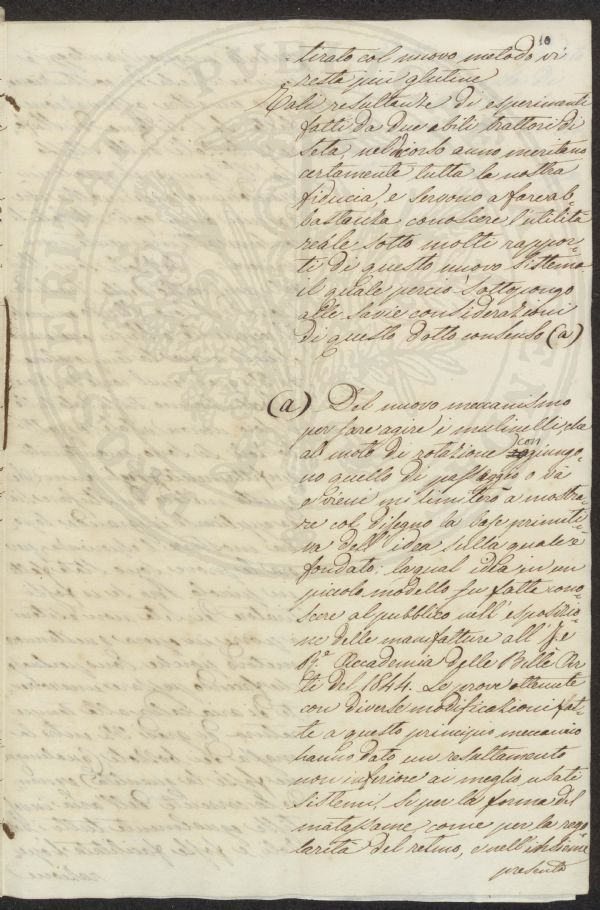 10
tirato col nuovo metodo vi
resta più glutine
Tali resultanze di esperimenti
fatti da due abili trattori di
seta, nel corso anno meritano
certamente tutta la nostra
fiducia, e servono a fare ab-
bastanza conoscere l'utilità
reale sotto molti rappor-
ti di questo nuovo sistema
il quale perciò sottopongo
alle savie considerazioni
di questo dotto consenso (a)
(a) Del nuovo meccanismo
per fare agire i mulinelli, che
al moto di rotazione con
giungo-
no quello di passaggio o va
e viene mi limiterò a mostra-
re col disegno la base primiti-
va dell'idea sulla quale è
fondato; la qual idea in un
piccolo modello fu fatta cono-
scere al pubblico nell'esposizio-
ne delle manifatture all'I. e
R.e Accademia delle Belle Ar-
ti del 1844. Le prove ottenute
con diverse modificazioni fat-
te a questo principio meccanico
hanno dato un resultamento
non inferiore ai meglio usati
sistemi, si per la forma del
matassame, come per la rego
larità del retino, e nell'insieme
presento
PVB